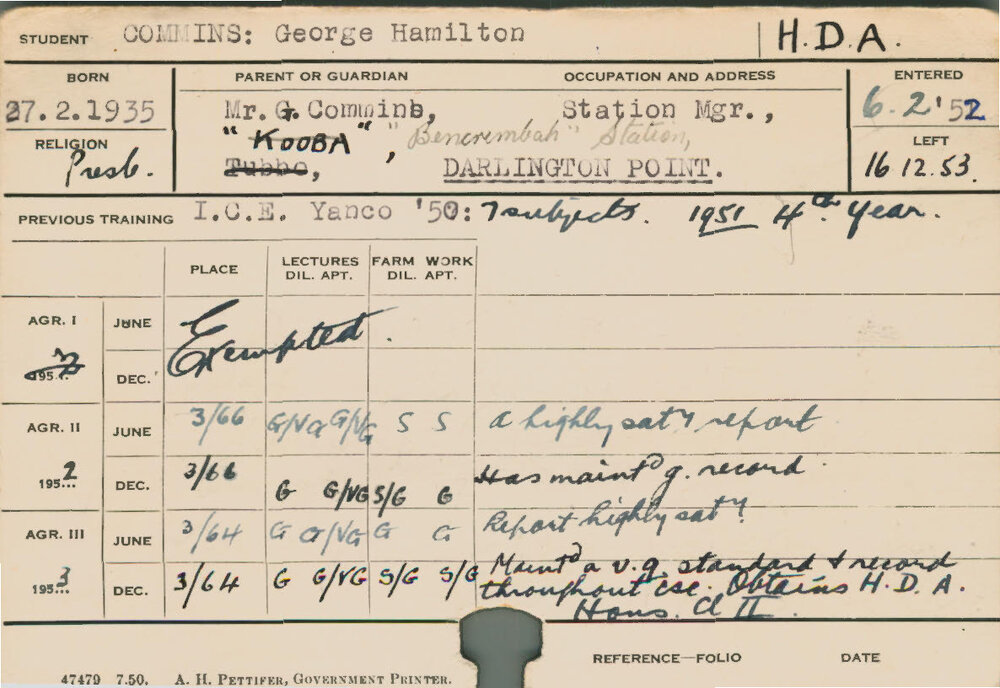 STUDENT COMMINS: George Hamilton H.D.A.
BORN PARENT OR GUARDIAN OCCUPATION AND ADDRESS ENTERED
27.2.1935 Mr. G. Commins, Station Mgr., 6.2.'52
"KOOBA" "Bencrembah" Station,
RELIGION LEFT
Presb. Tubbo, DARLINGTON POINT. 16.12.53.
PREVIOUS TRAINING I.C.E. Yanco '50: 7 subjects. 1951 4th Year.
PLACE LECTURES FARM WORK
DIL. APT. DIL. APT.
AGR. I JUNE Exempted.
195 DEC.
AGR. II JUNE 3/66 G/VG G/VG S S A highly saty report
1952 DEC. 3/66 G G/VG S/G G Has maintd g. record.
AGR. III JUNE 3/64 G G/VG G G Report highly saty
1953 DEC. 3/64 G G/VG S/G S/G Maintd a v.g. standard & record
throughout cse. Obtains H.D.A.
Hons. Cl II
REFERENCE—FOLIO DATE
47479 7.50. A. H. PETTIFER, GOVERNMENT PRINTER.